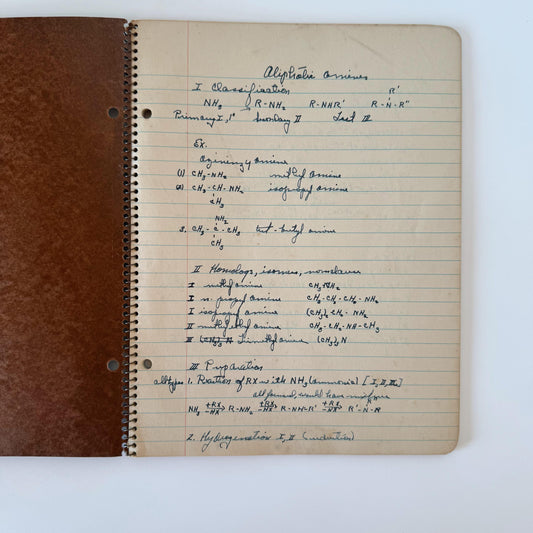 Aliphatic amines
I Classification
R'
NH3 R-NH2 R-NHR' R-N-R"
Primary I, 1° Secondary II Tert III
Ex.
amine
(1) CH3-NH2 methyl amine
(2) CH3-CH-NH2 isopropyl amine
CH3
NH2
3. CH3-C-CH3 tert-butyl amine
CH3
II Homologs, isomers, nomenclature
I methyl amine CH3NH2
I n. propyl amine CH3-CH2-CH2-NH2
I isopropyl amine (CH3)2CH-NH2
II methyl ethyl amine CH3-CH2-NH-CH3
III (CH3)3 N Trimethyl amine (CH3)3N
III Preparation
all types 1. Reaction of RX with NH3 (ammonia) [I, II, III]
all formed, would have mixture
NH3 +RX -HX R-NH2 +RX -HX R-NH-R' +RX -HX R'-N-R
2. Hydrogenation I, II (reduction)